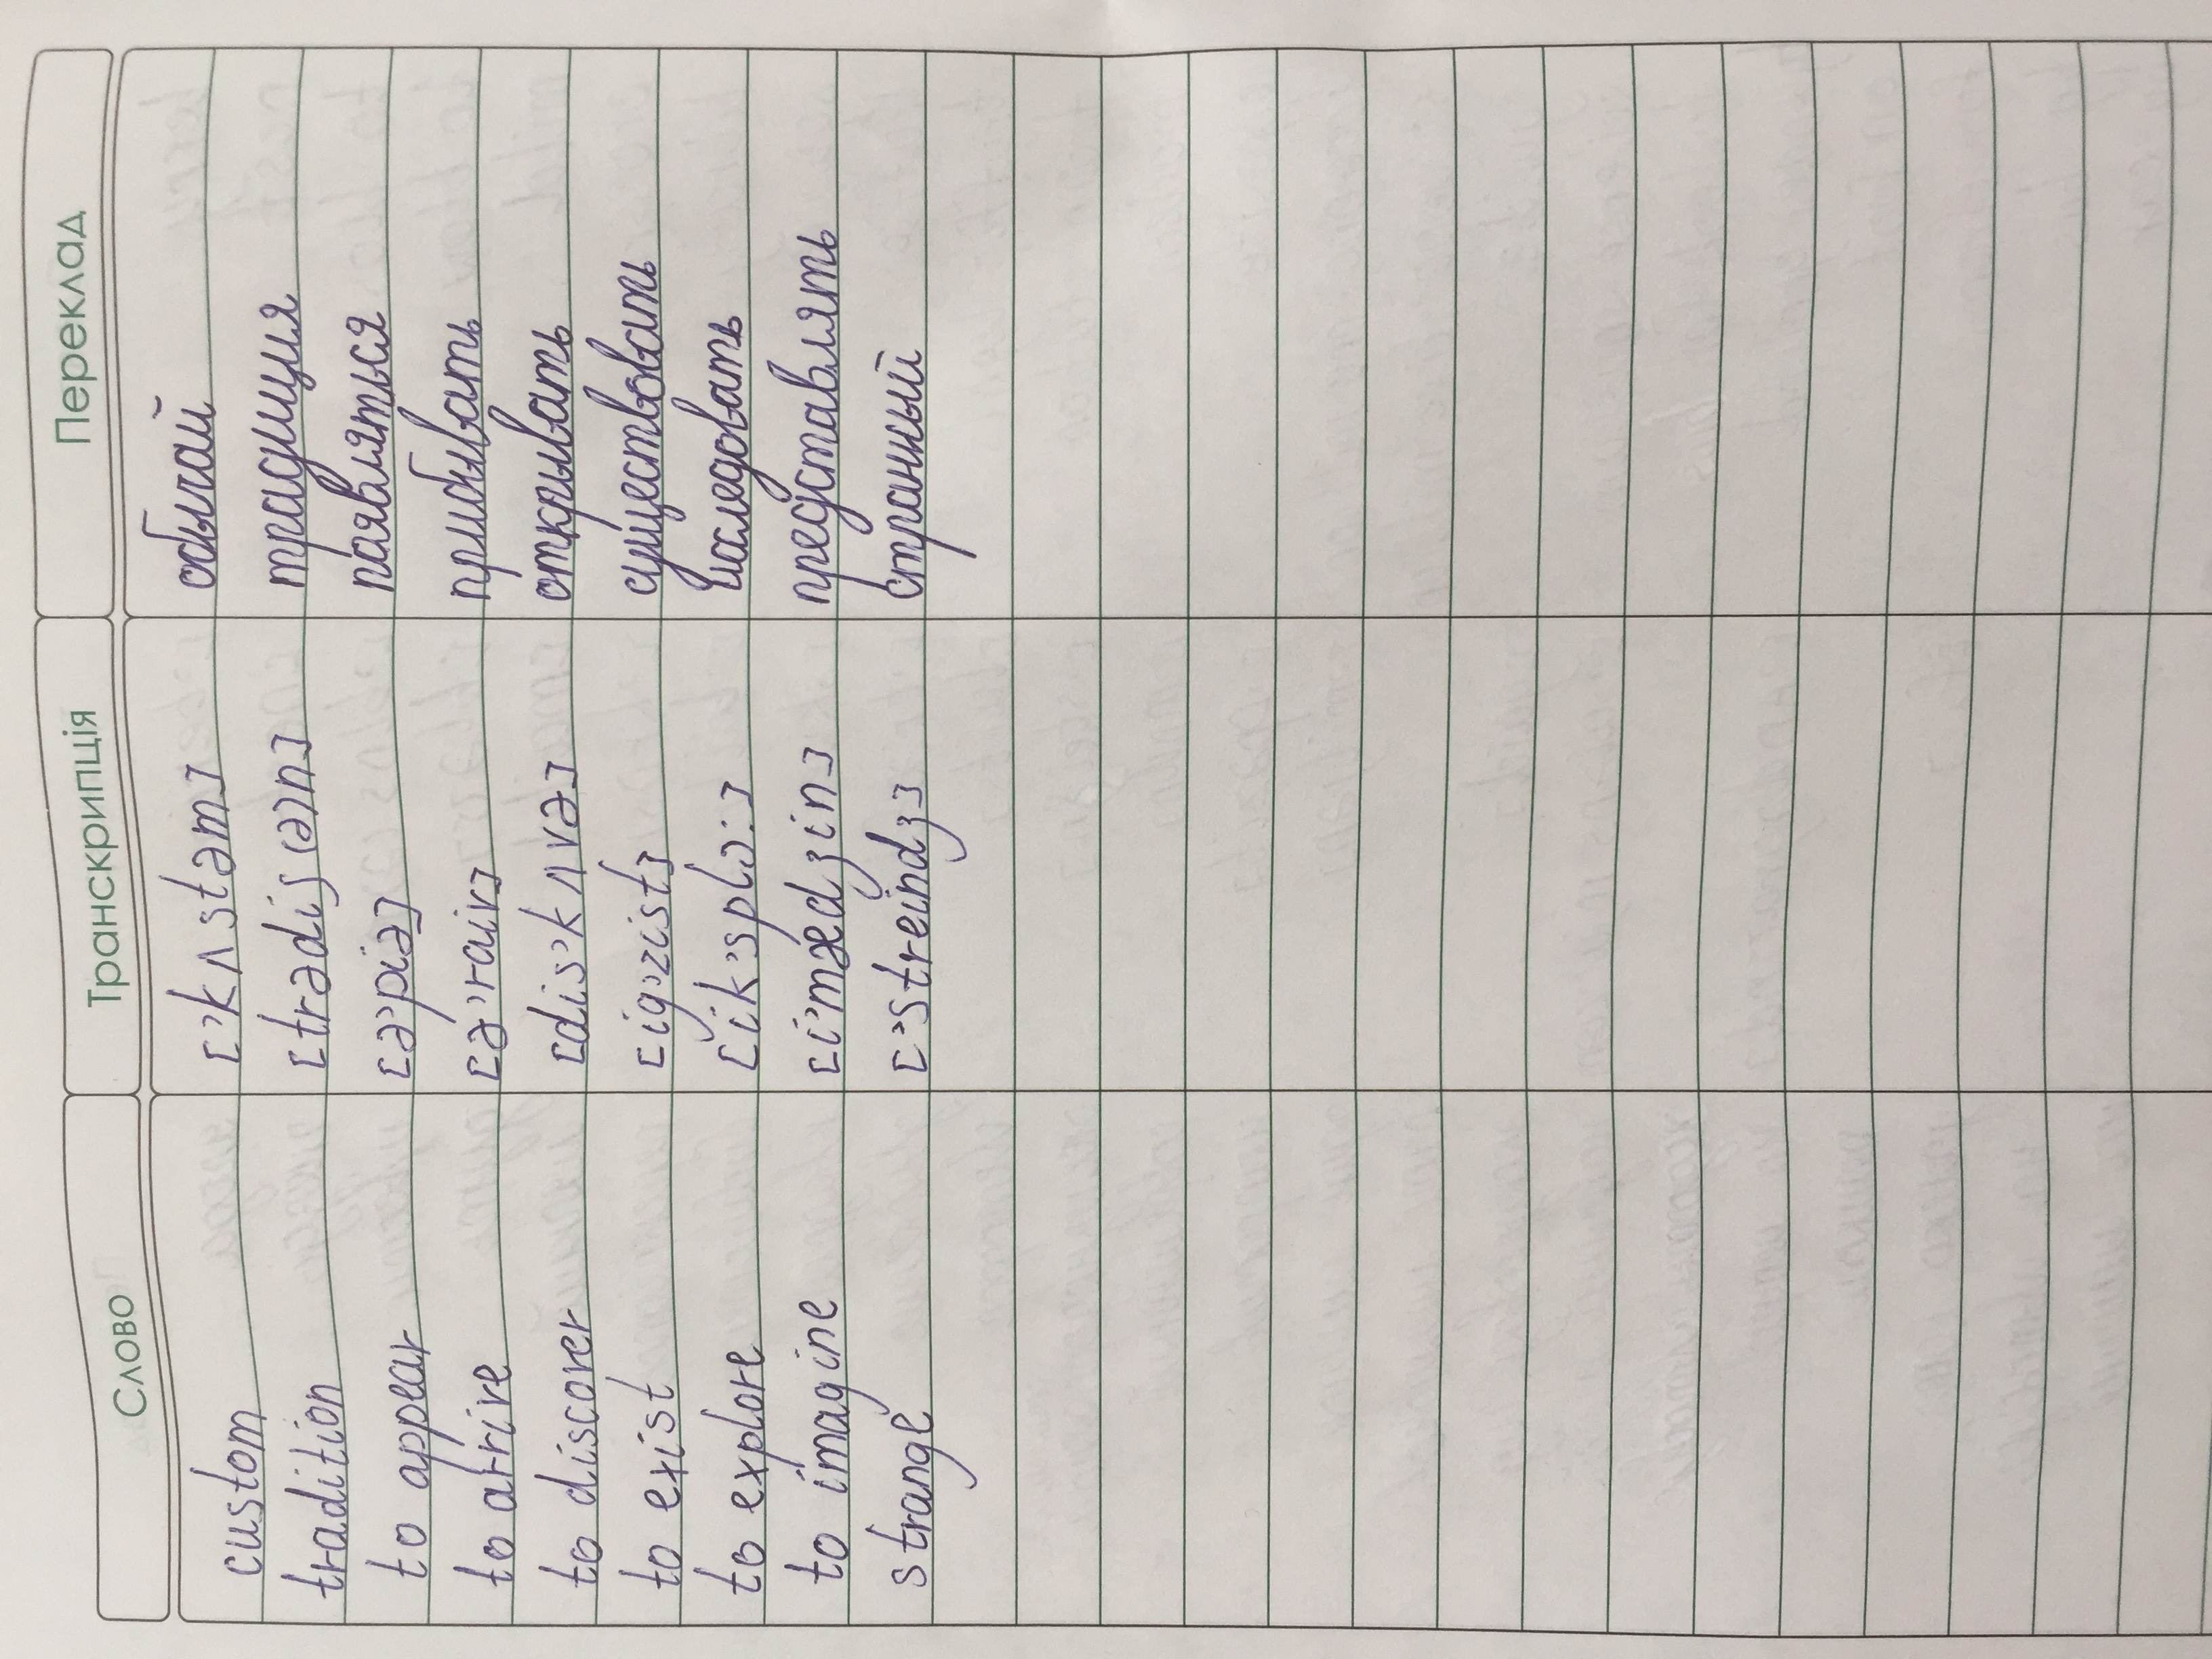 Слово Транскрипція Переклад
custom [ˈkʌstəm] обычай
tradition [trədiʃ(ə)n] традиция
to appear [əˈpiə] паявляться
to arrive [əˈraiv] прибывать
to discover [disˈkʌvə] открывать
to exist [igˈzist] существовать
to explore [ikˈsplɔ:] исследовать
to imagine [iˈmædʒin] представлять
strange [ˈstreindʒ] странный